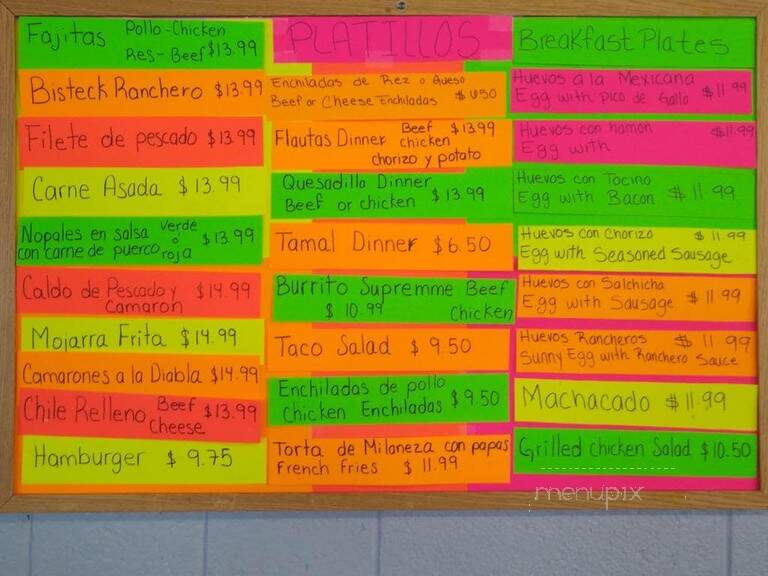 Fajitas Pollo-Chicken
Res-Beef $13.99
Bisteck Ranchero $13.99
Filete de pescado $13.99
Carne Asada $13.99
Nopales en salsa Verde
o $13.99
con carne de puerco roja
Caldo de Pescado y $14.99
Camaron
Mojarra Frita $14.99
Camarones a la Diabla $14.99
Chile Relleno Beef $13.99
Cheese
Hamburger $ 9.75
PLATILLOS
Enchiladas de Rez o Queso
Beef or Cheese Enchiladas
Flautas Dinner Beef $13.99
chicken
chorizo y potato
Quesadilla Dinner
Beef or chicken $13.99
Tamal Dinner $6.50
Burrito Supremme Beef
$ 10.99 Chicken
Taco Salad $ 9.50
Enchiladas de pollo
Chicken Enchiladas $9.50
Torta de Milaneza con papas
French Fries $ 11.99
Breakfast Plates
Huevos a la Mexicana
Egg with pico de Gallo $11.99
Huevos con hamon $11.99
Egg with
Huevos con Tocino
Egg with Bacon $11.99
Huevos con Chorizo $11.99
Egg with Seasoned Sausage
Huevos con Salchicha
Egg with Sausage $11.99
Huevos Rancheros $11.99
Sunny Egg with Ranchero Sauce
Machacado $11.99
Grilled chicken Salad $10.50
menupix